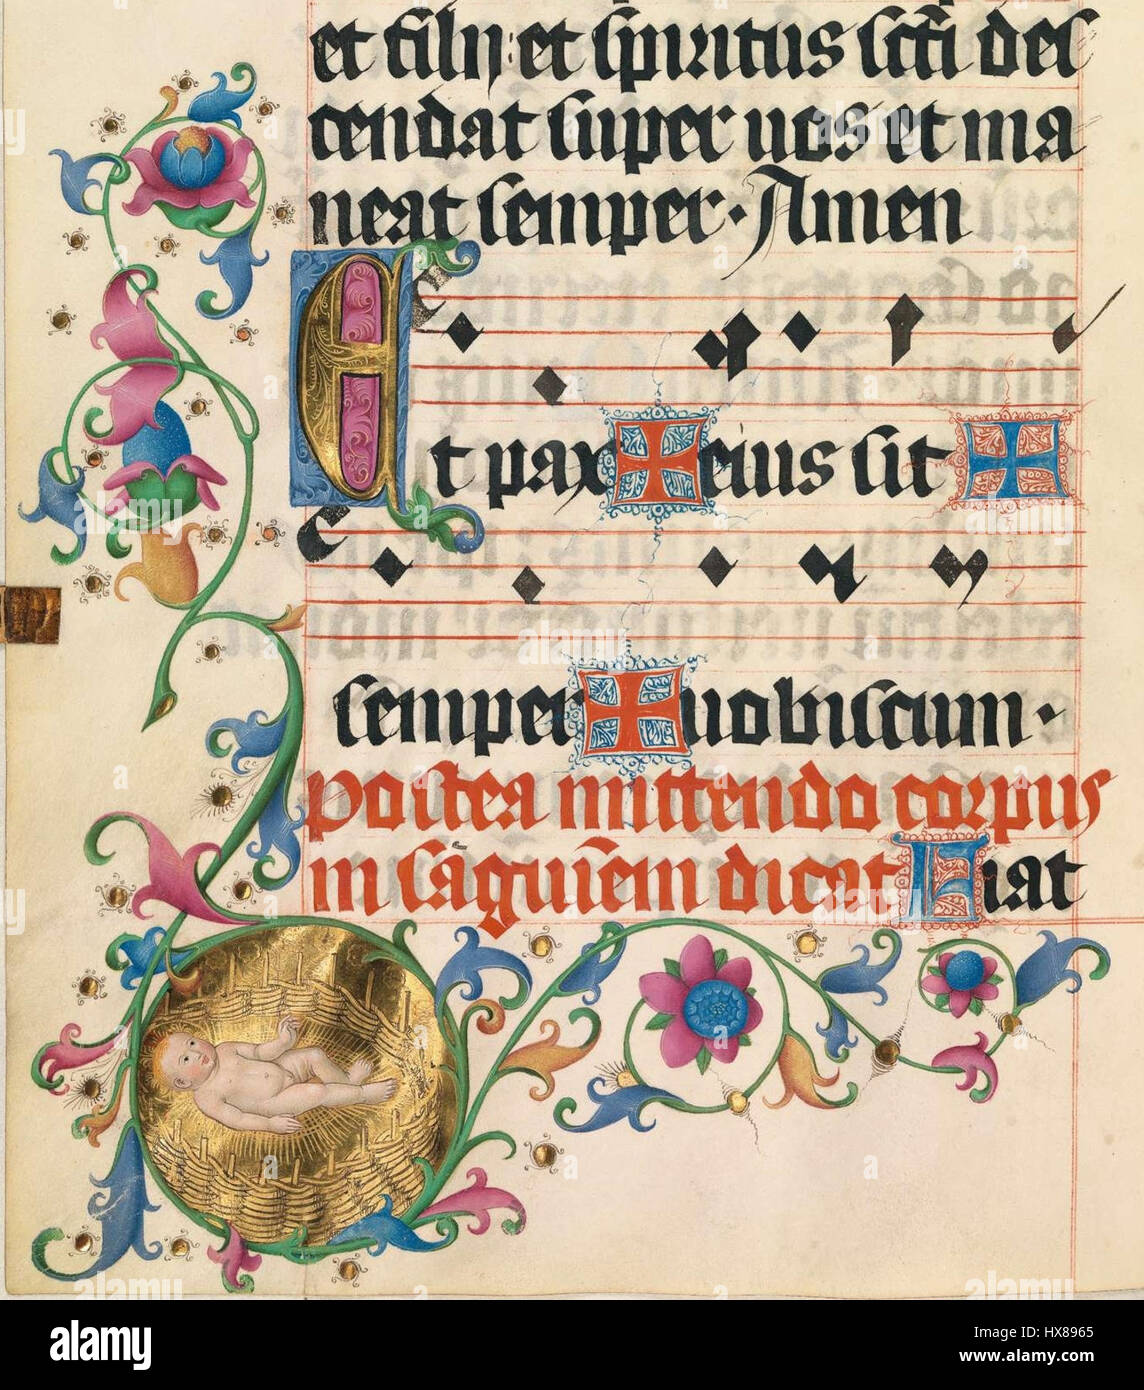 et filij: et spiritus scti des
cendat super uos et ma
neat semper · Amen
Et pax ✠ eius sit ✠
semper ✠ uobiscum ·
Postea mittendo corpus
in sāguīem dicat Fiat
alamy
Image ID: HX8965
www.alamy.com